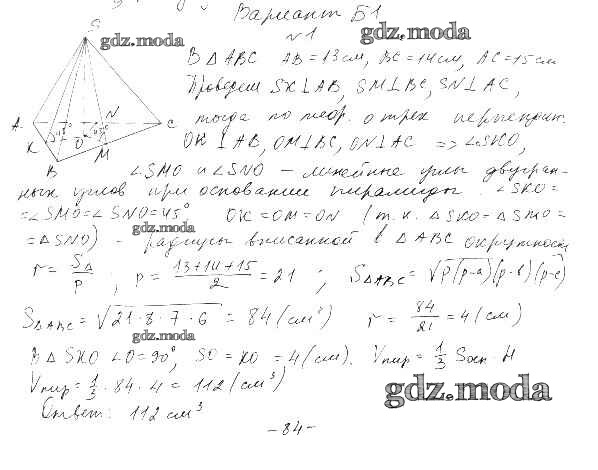 Вариант Б1
gdz.moda
gdz.moda
№1
S
В ΔABC AB = 13 см, BC = 14 см, AC = 15 см
Проведем SK⊥AB, SM⊥BC, SN⊥AC,
тогда по теор. о трех перпендик.
OK ⊥ AB, OM⊥BC, ON⊥AC => ∠SKO,
A
N
C
K
O
B
M
∠SMO и ∠SNO – линейные углы двугран-
ных углов при основании пирамиды. ∠SKO =
= ∠SMO = ∠SNO = 45° OK = OM = ON (т.к. ΔSKO = ΔSMO =
gdz.moda
= ΔSNO) – радиусы вписанной в ΔABC окружности
r = SΔ/p ; p = (13+14+15)/2 = 21 ; SΔABC = √p(p-a)(p-b)(p-c)
SΔABC = √21·8·7·6 = 84 (см²) r = 84/21 = 4 (см)
gdz.moda
В Δ SKO ∠O = 90°, SO = KO = 4 (см). Vпир = 1/3 Sосн · H
Vпир = 1/3 · 84 · 4 = 112 (см³)
gdz.moda
Ответ: 112 см³
- 84 -